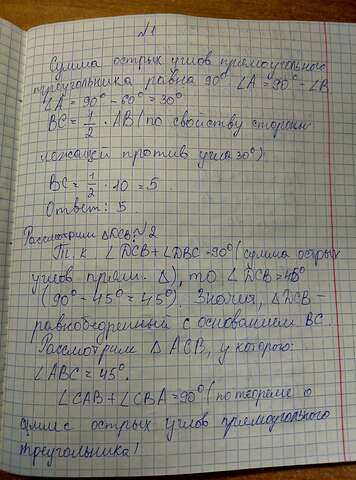 №1
Сумма острых углов прямоугольного
треугольника равна 90° ∠A = 90° - ∠B
∠A = 90° - 60° = 30°
BC = 1/2 · AB (по свойству стороны
лежащей против угла 30°)
BC = 1/2 · 10 = 5
Ответ: 5.
Рассмотрим ΔDCB: №2
Т.к ∠DCB + ∠DBC = 90° (сумма острых
углов прям. Δ), то ∠DCB = 45°
(90° - 45° = 45°). Значит, ΔDCB –
равнобедренный с основанием BC.
Рассмотрим ΔACB, у которого:
∠ABC = 45°.
∠CAB + ∠CBA = 90° (по теореме о
сумме острых углов прямоугольного
треугольника!